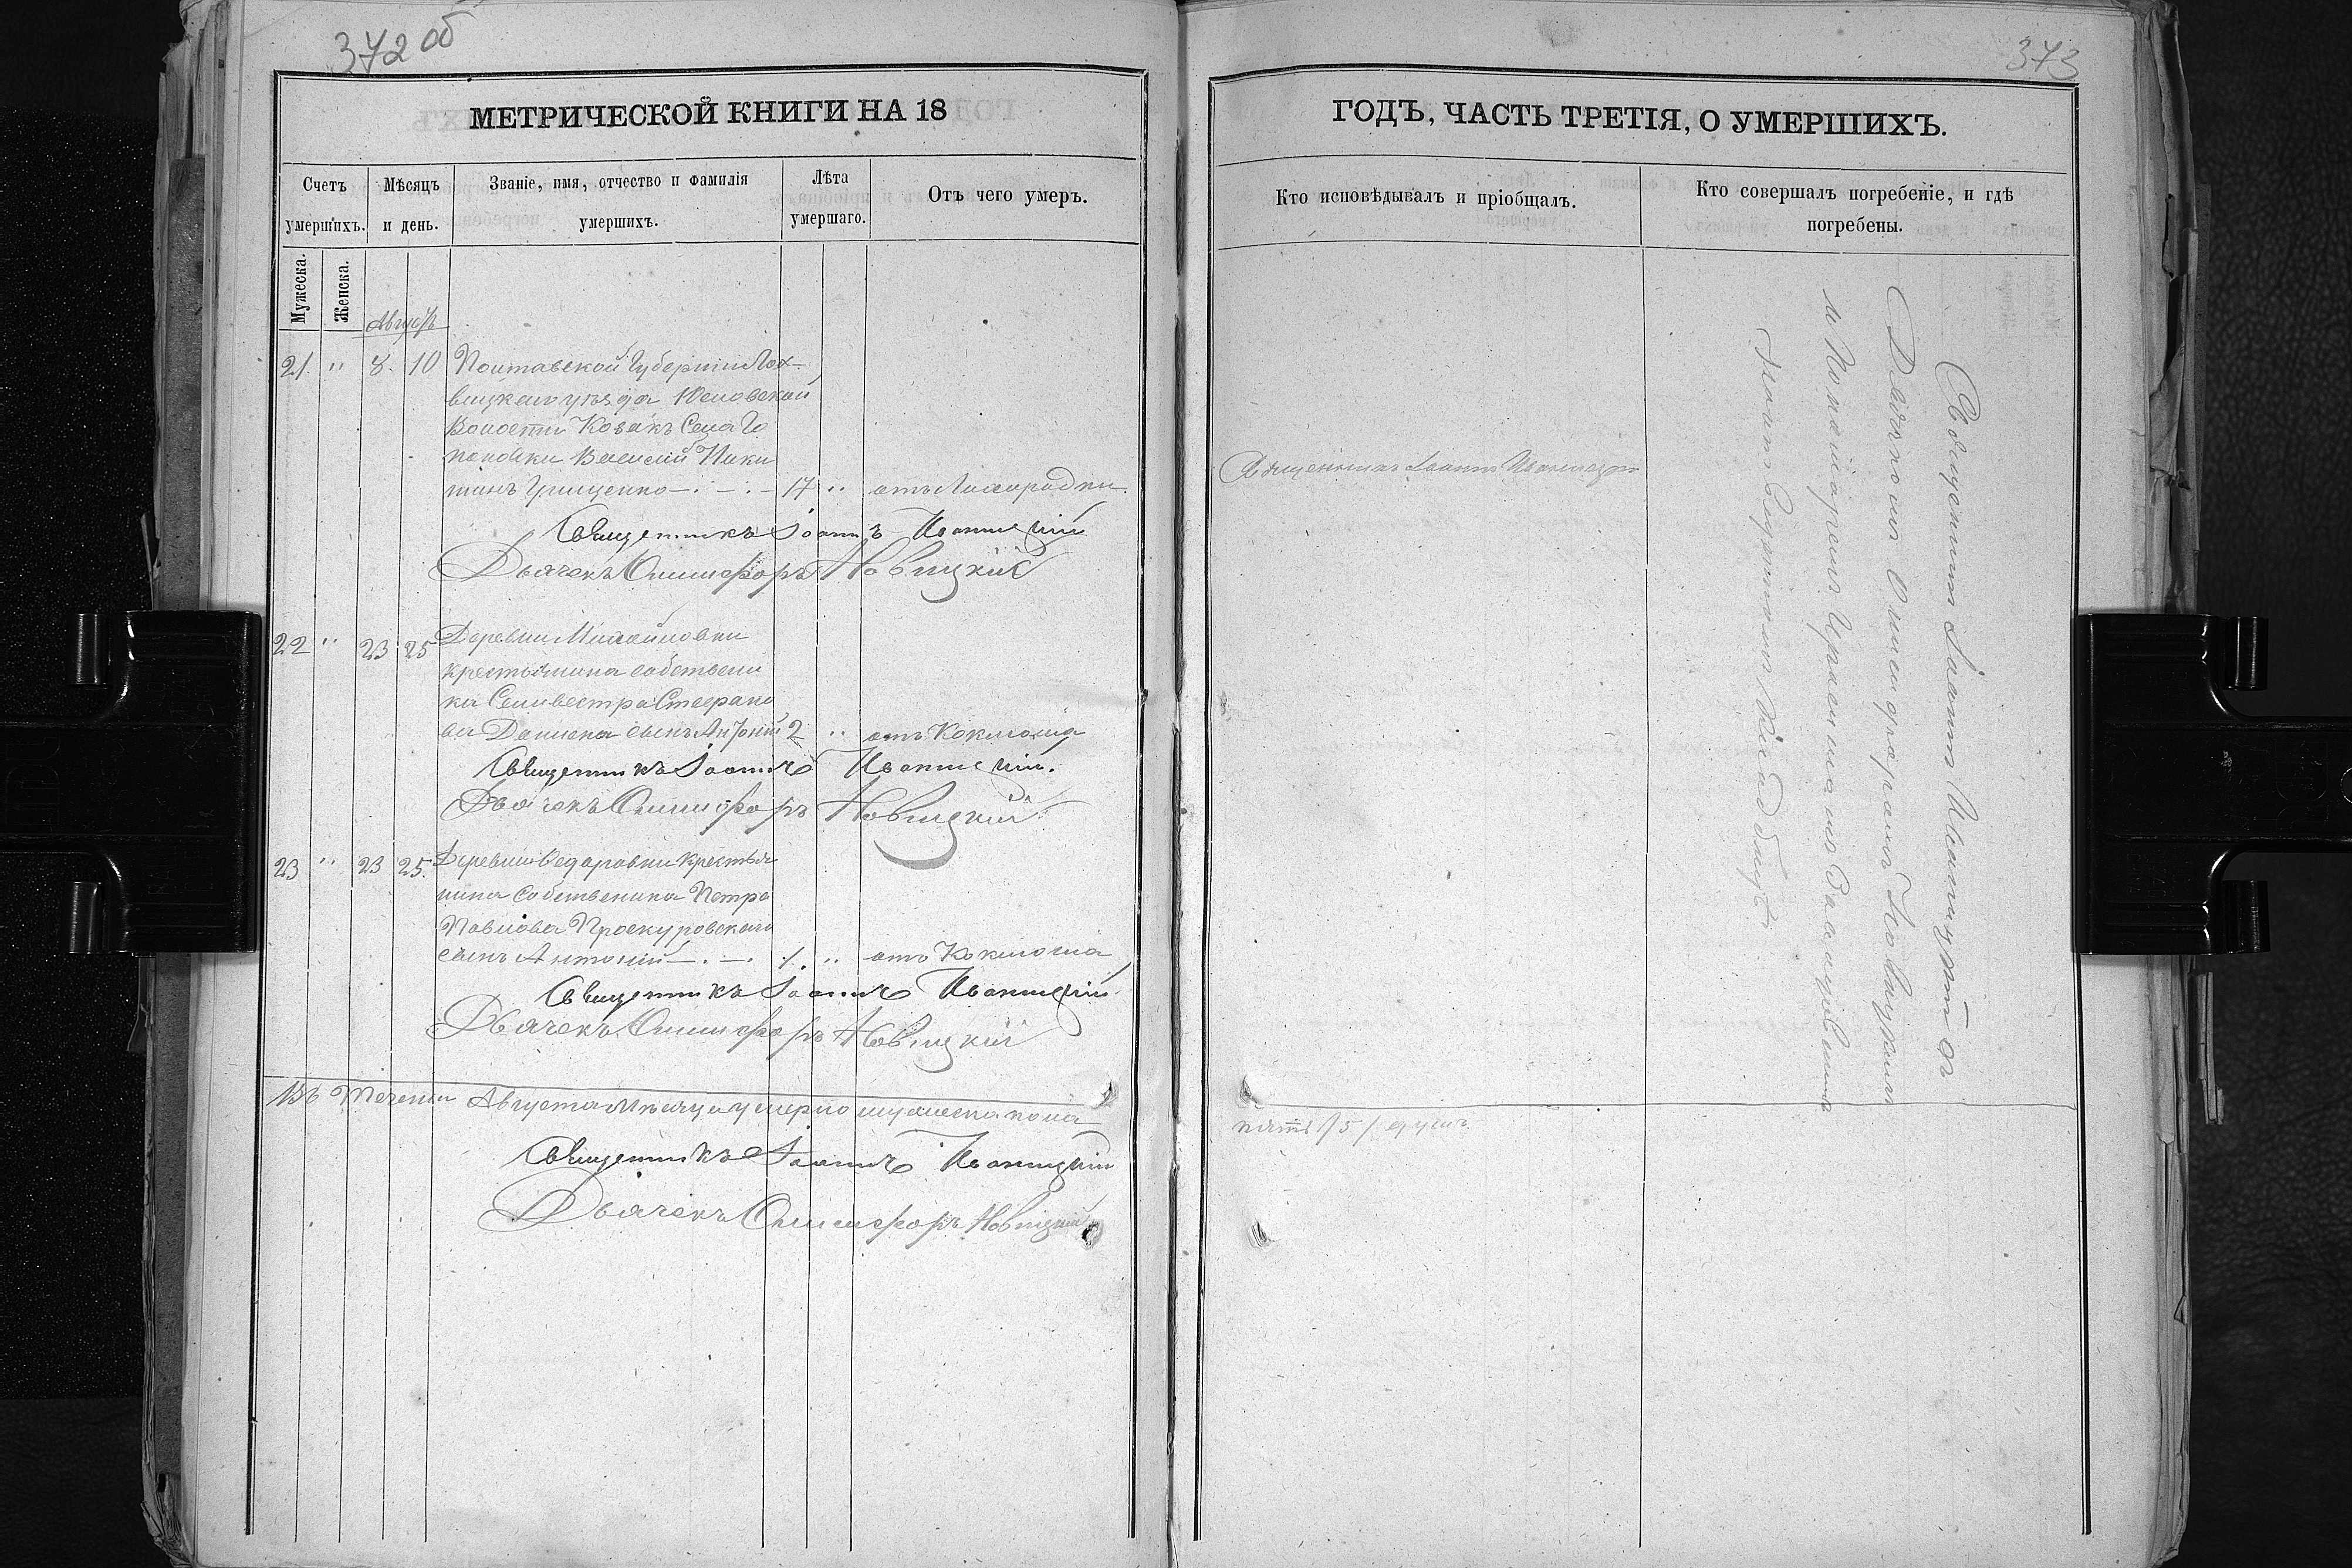 372 об
МЕТРИЧЕСКОЙ КНИГИ НА 18
Счетъ умершихъ.
Мѣсяцъ и день.
Званіе, имя, отчество и фамилія умершихъ.
Лѣта умершаго.
Отъ чего умеръ.
Мужеска.
Женска.
Августъ
21. " 8. 10 Полтавской Губерніи Лох-
вицкаго уѣзда Юсковской
Волости Козакъ Села
Василій Ники
тинъ Грищенко 17 " отъ Лихорадки.
Священникъ Іоаннъ Иваницкій
Дьячекъ Онисифоръ Новицкій
22 " 23 25 Деревни Михайловки
крестьянина собствени
ка Селивестра Стефано
ва сынъ Антоній 2 " отъ Коклюша
Священникъ Іоаннъ Иваницкій.
Дьячекъ Онисифоръ Новицкій
23 " 23 25. Деревни Федоровки крестья
нина собственика Петра
Павлова Проскуровскаго
сынъ Антоній 1. " отъ Коклюша
Священникъ Іоаннъ Иваницкій
Дьячекъ Онисифоръ Новицкій
Въ теченіи Августа Мѣсяца умерло мужеска пола
Священникъ Іоаннъ Иваницкій
Дьячекъ Онисифоръ Новицкій
373
ГОДЪ, ЧАСТЬ ТРЕТІЯ, О УМЕРШИХЪ.
Кто исповѣдывалъ и пріобщалъ.
Кто совершалъ погребеніе, и гдѣ погребены.
Священникъ Іоаннъ Иваницкій
Священникъ Іоаннъ Иваницкій съ
Дьячкомъ Онисифоромъ Новицкимъ
и Пономаремъ
кладбищѣ
пять /5/ душъ